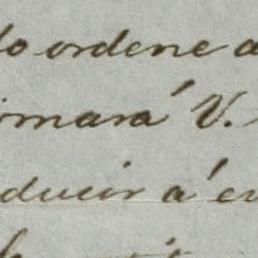 lo ordene a
irmará V.
ducir á en